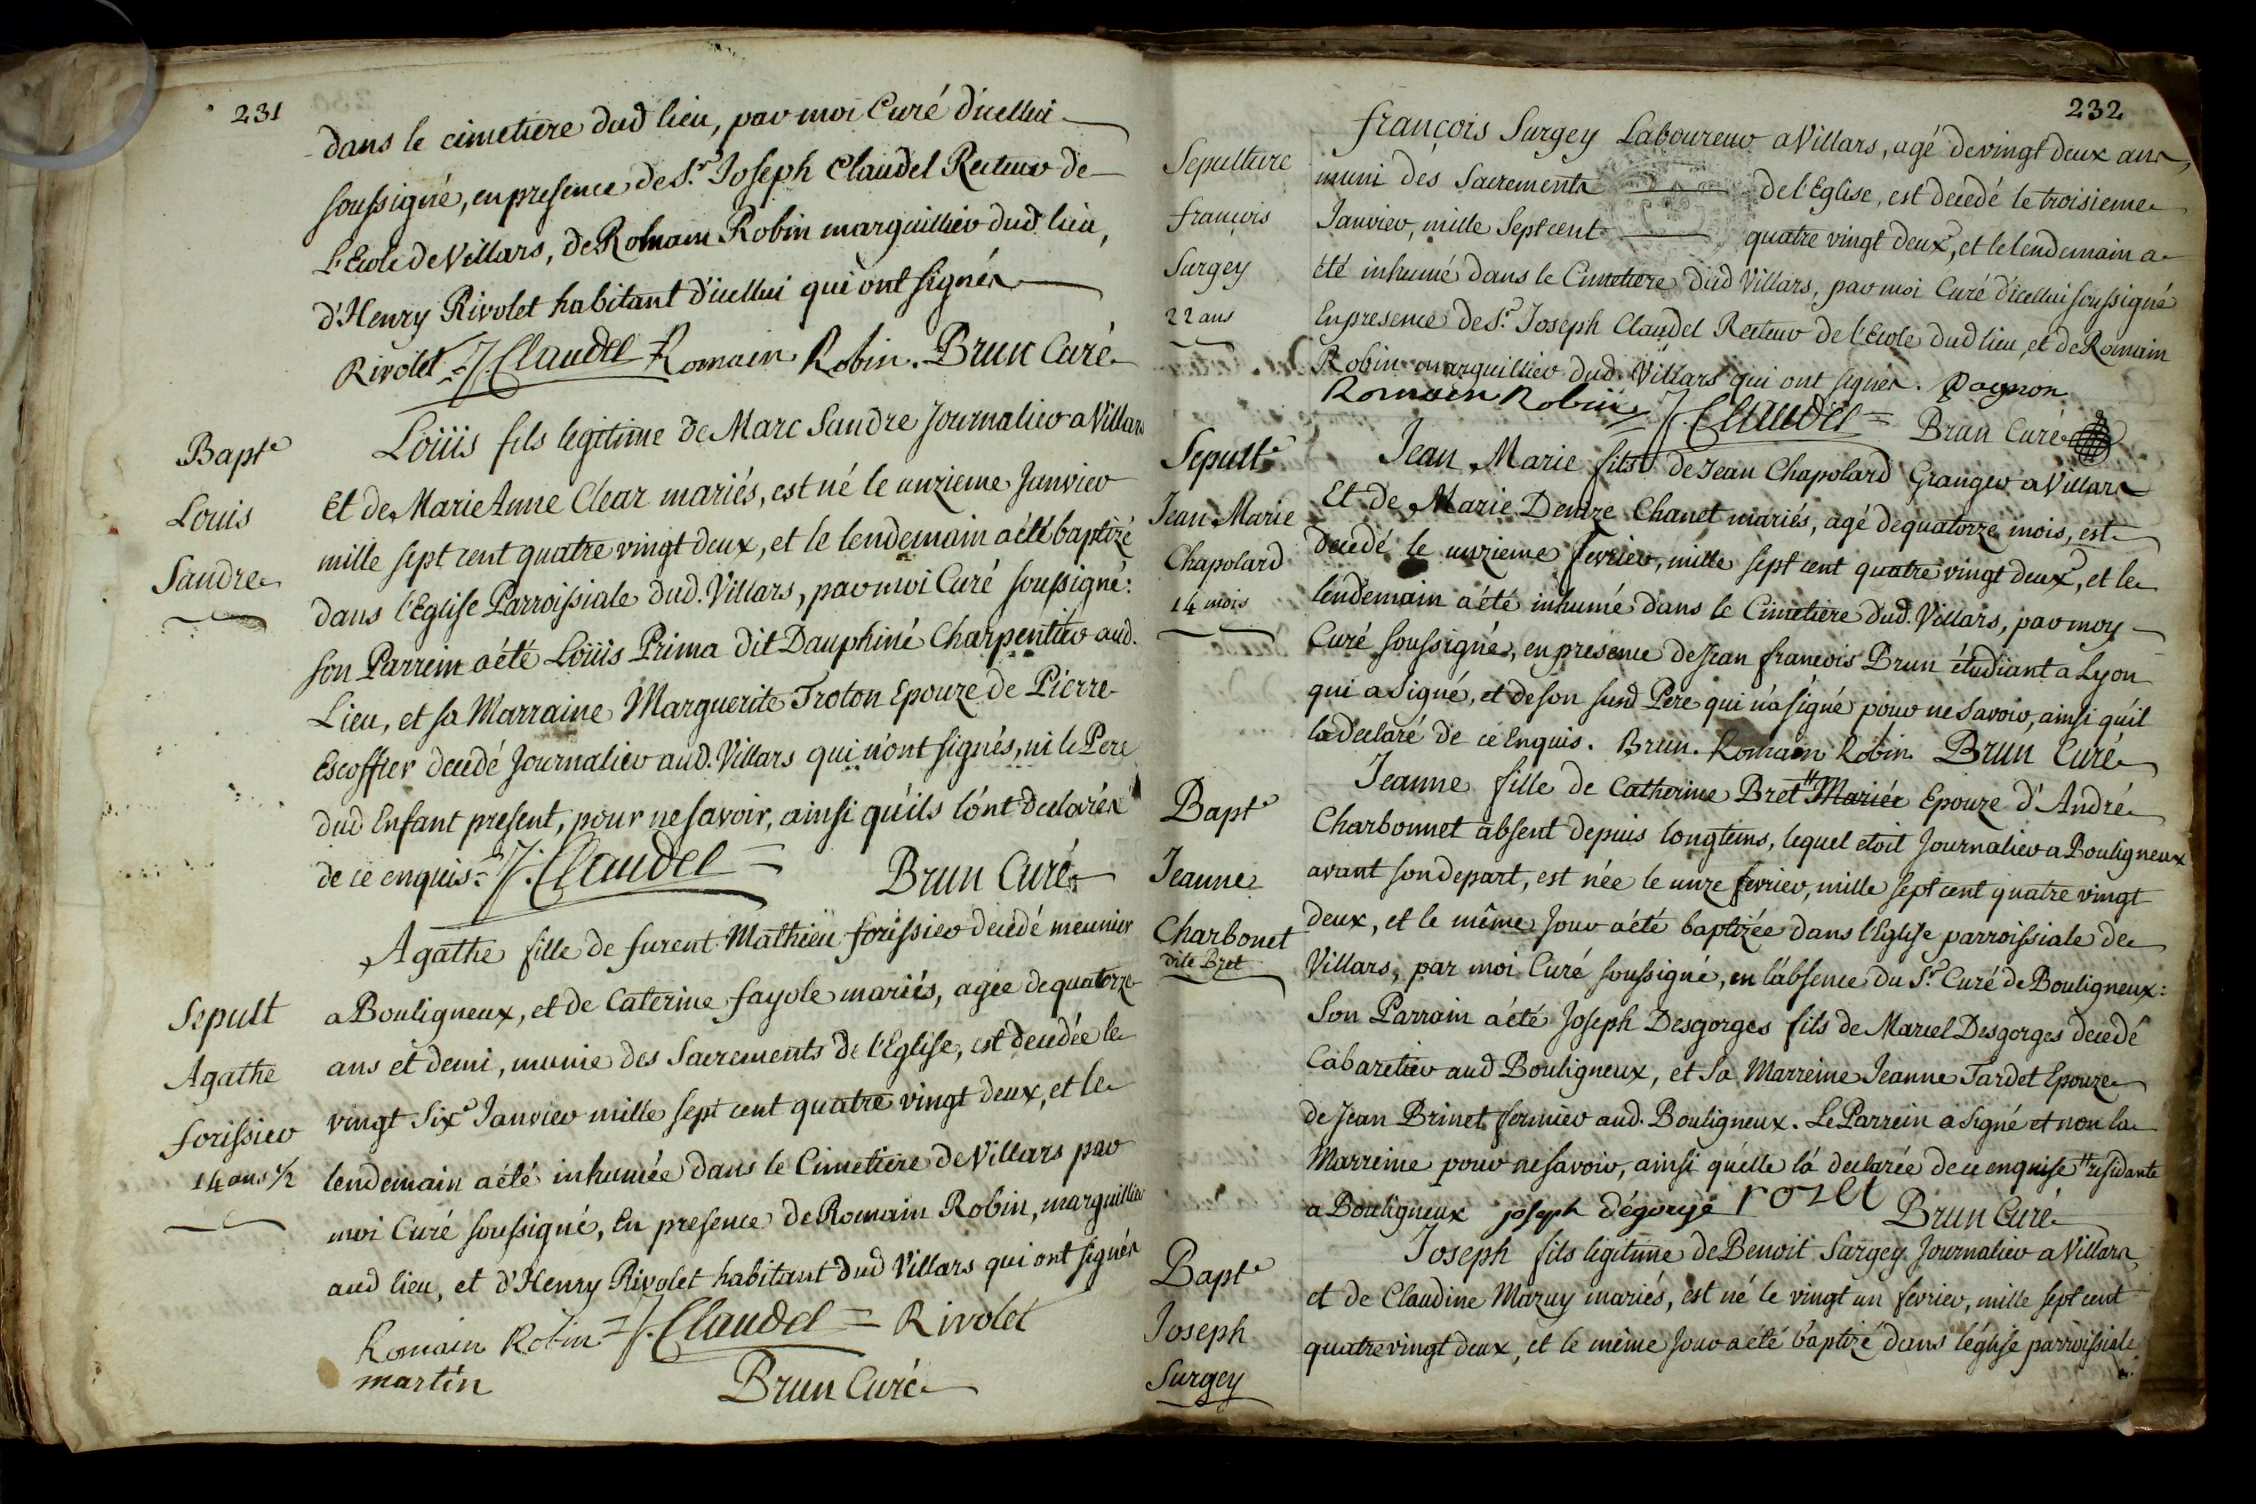 231
dans le cimetiere dud lieu, par moi Curé d'icellui
soussigné, en presence de Sr. Joseph Claudel Recteur de
l'Ecole de Villars, de Romain Robin marguillier dud lieu,
d'Henry Rivolet habitant d'icellui qui ont signés
Rivolet = J. Claudel = Romain Robin. Brun Curé
Bapte
Louis
Sandre
Loüis fils legitime de Marc Sandre Journalier a Villars
Et de Marie Anne Clear mariés, est né le unzieme Janvier
mille sept cent quatre vingt deux, et le lendemain a été baptizé
dans l'Eglise Parroissiale dud. Villars, par moi Curé soussigné:
son Parrein a été Loüis Prima dit Dauphiné Charpentier aud.
Lieu, et sa Marraine Marguerite Troton Epouze de Pierre
Escoffier decedé Journalier aud. Villars qui n'ont signés, ni le Pere
dud Enfant present, pour ne savoir, ainsi qu'ils l'ont declarés
de ce enquis = J. Claudel = Brun Curé
Sepult
Agathe
forissier
14 ans 1/2
Agathe fille de furent Mathieu forissier decedé meunier
a Bouligneux, et de Caterine fayole mariés, agée de quatorze
ans et demi, munie des Sacrements de l'Eglise, est decedée le
vingt Six Janvier mille sept cent quatre vingt deux, et le
lendemain a été inhumée dans le Cimetiere de Villars par
moi Curé soussigné, En presence de Romain Robin, marguillier
aud lieu, et d'Henry Rivolet habitant dud Villars qui ont signés
Romain Robin = J. Claudel = Rivolet
martin Brun Curé
232
Sepulture
françois
Surgey
22 ans
françois Surgey Laboureur a Villars, agé de vingt deux ans,
muni des Sacrements de l'Eglise, est decedé le troisieme
Janvier, mille Sept cent quatre vingt deux, et le lendemain a
été inhumé dans le Cimetiere dud Villars, par moi Curé d'icellui soussigné
En presence de Sr. Joseph Claudel Recteur de l'Ecole dud lieu, et de Romain
Robin marguillier dud. Villars qui ont signés. Pagnon
Romain Robin J. Claudel = Brun Curé
Sepulte
Jean Marie
Chapolard
14 mois
Jean Marie fils de Jean Chapolard Granger a Villars
Et de Marie Denize Chanet mariés, agé de quatorze mois, est
decedé le unzieme fevrier, mille sept cent quatre vingt deux, et le
lendemain a été inhumé dans le Cimetiere dud. Villars, par moy
Curé soussigné, en presence de Jean francois Brun étudiant a Lyon
qui a signé, et de son susd Pere qui n'a signé pour ne Savoir, ainsi qu'il
la declaré de ce Enquis. Brun. Romain Robin. Brun Curé
Bapte
Jeanne
Charbonet
dite Bret
Jeanne fille de Catherine Bret # Mariée Epouze d'André
Charbonnet absent depuis longtems, lequel etoit Journalier a Bouligneux
avant son depart, est née le unze fevrier, mille sept cent quatre vingt
deux, et le même Jour a été baptizée dans l'Eglise parroissiale de
Villars, par moi Curé soussigné, en l'absence du Sr. Curé de Bouligneux:
Son Parrain a été Joseph Desgorges fils de Marcel Desgorges decedé
Cabaretier aud Bouligneux, et sa Marreine Jeanne Tardet Epouze
de Jean Brinet fermier aud. Bouligneux. Le Parrein a signé et non la
Marreine pour ne savoir, ainsi qu'elle la declarée de ce enquise # residante
a Bouligneux joseph dégorge rozet Brun Curé
Bapte
Joseph
Surgey
Joseph fils legitime de Benoit Surgey Journalier a Villars,
et de Claudine Mazuy mariés, est né le vingt un fevrier, mille sept cent
quatre vingt deux, et le même Jour a été baptizé dans l'église parroissiale